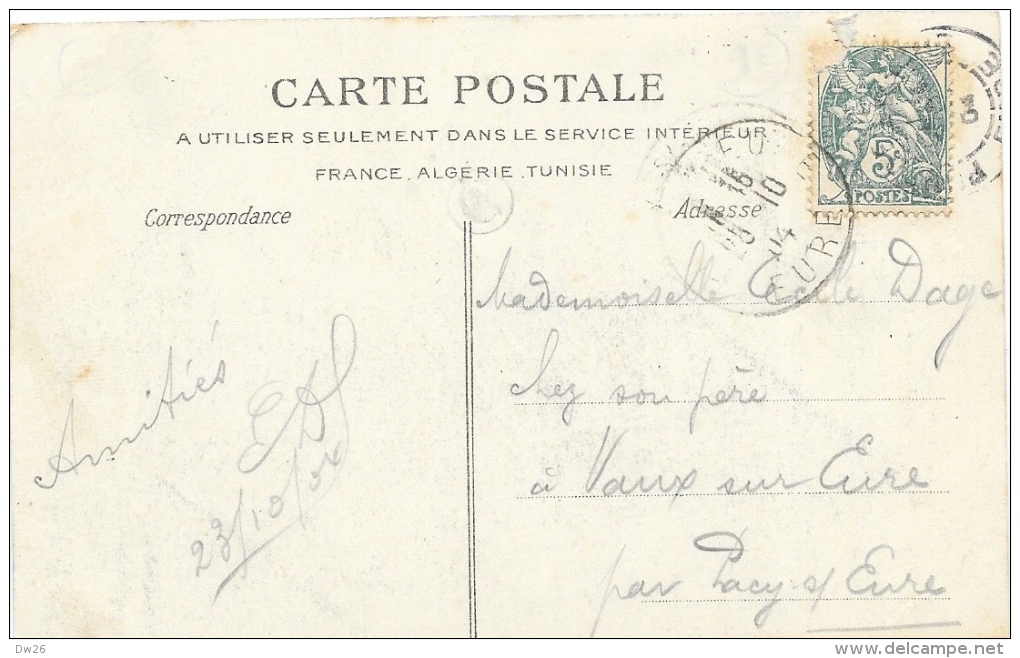 CARTE POSTALE
A UTILISER SEULEMENT DANS LE SERVICE INTÉRIEUR
FRANCE, ALGÉRIE, TUNISIE
Correspondance
Adresse
5c
POSTES
15
25 10
04
EURE
Mademoiselle Cécile Dage
chez son père
à Vaux sur Eure
par Pacy s/ Eure
Amitiés
23/10/04
Dw26
www.delcampe.net